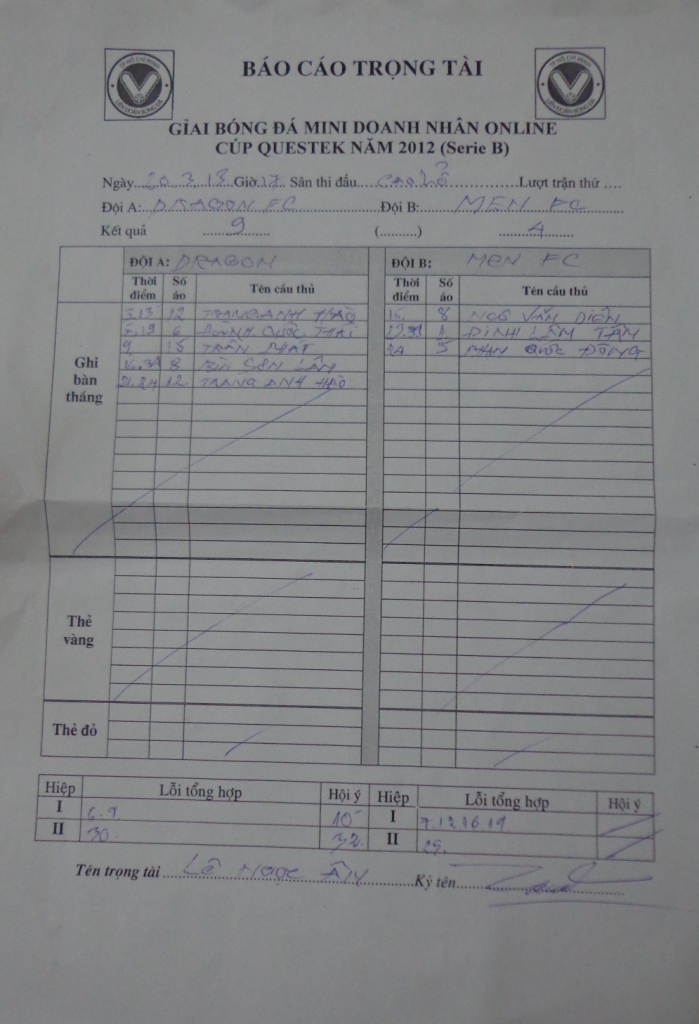 BÁO CÁO TRỌNG TÀI
TP HỒ CHÍ MINH
LIÊN ĐOÀN BÓNG ĐÁ
TP HỒ CHÍ MINH
LIÊN ĐOÀN BÓNG ĐÁ
GIẢI BÓNG ĐÁ MINI DOANH NHÂN ONLINE
CÚP QUESTEK NĂM 2012 (Serie B)
Ngày 20.3.13 Giờ 17 Sân thi đấu CAO LỖ Lượt trận thứ ....
Đội A: DRAGON FC Đội B: MEN FC
Kết quả 9 (..........) 4
ĐỘI A: DRAGON ĐỘI B: MEN FC
Thời điểm Số áo Tên cầu thủ Thời điểm Số áo Tên cầu thủ
Ghi bàn thắng
12 TRANG ANH HÀO 8 NGÔ VĂN DIỄN
6 QUỐC THÁI 1 ĐINH LÂM TẤN
9 15 TRẦN PHÁT 5 PHAN QUỐC ĐÔNG
8 BÙI SƠN LÂM
12 TRANG ANH HÀO
Thẻ vàng
Thẻ đỏ
Hiệp Lỗi tổng hợp Hội ý Hiệp Lỗi tổng hợp Hội ý
I 6.9 10 I 7.12.16.19
II 30 32 II 29.
Tên trọng tài Lê Ngọc Ký tên